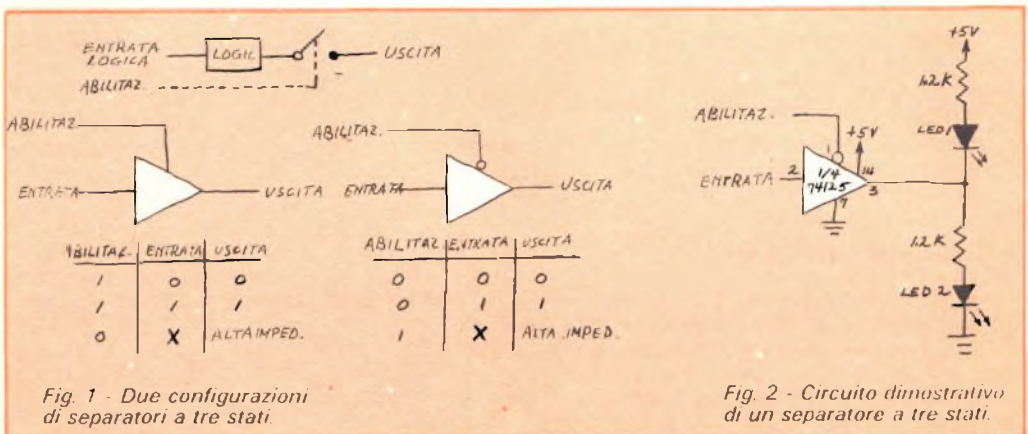 ENTRATA LOGICA
LOGIC
USCITA
ABILITAZ.
ABILITAZ.
ENTRATA
USCITA
ABILITAZ. ENTRATA USCITA
1 0 0
1 1 1
0 X ALTA IMPED.
ABILITAZ.
ENTRATA
USCITA
ABILITAZ ENTRATA USCITA
0 0 0
0 1 1
1 X ALTA IMPED.
Fig. 1 - Due configurazioni
di separatori a tre stati.
+5V
1.2K
LED 1
ABILITAZ.
+5V
1
ENTRATA 2
1/4
74125
14
3
7
1.2K
LED 2
Fig. 2 - Circuito dimostrativo
di un separatore a tre stati.